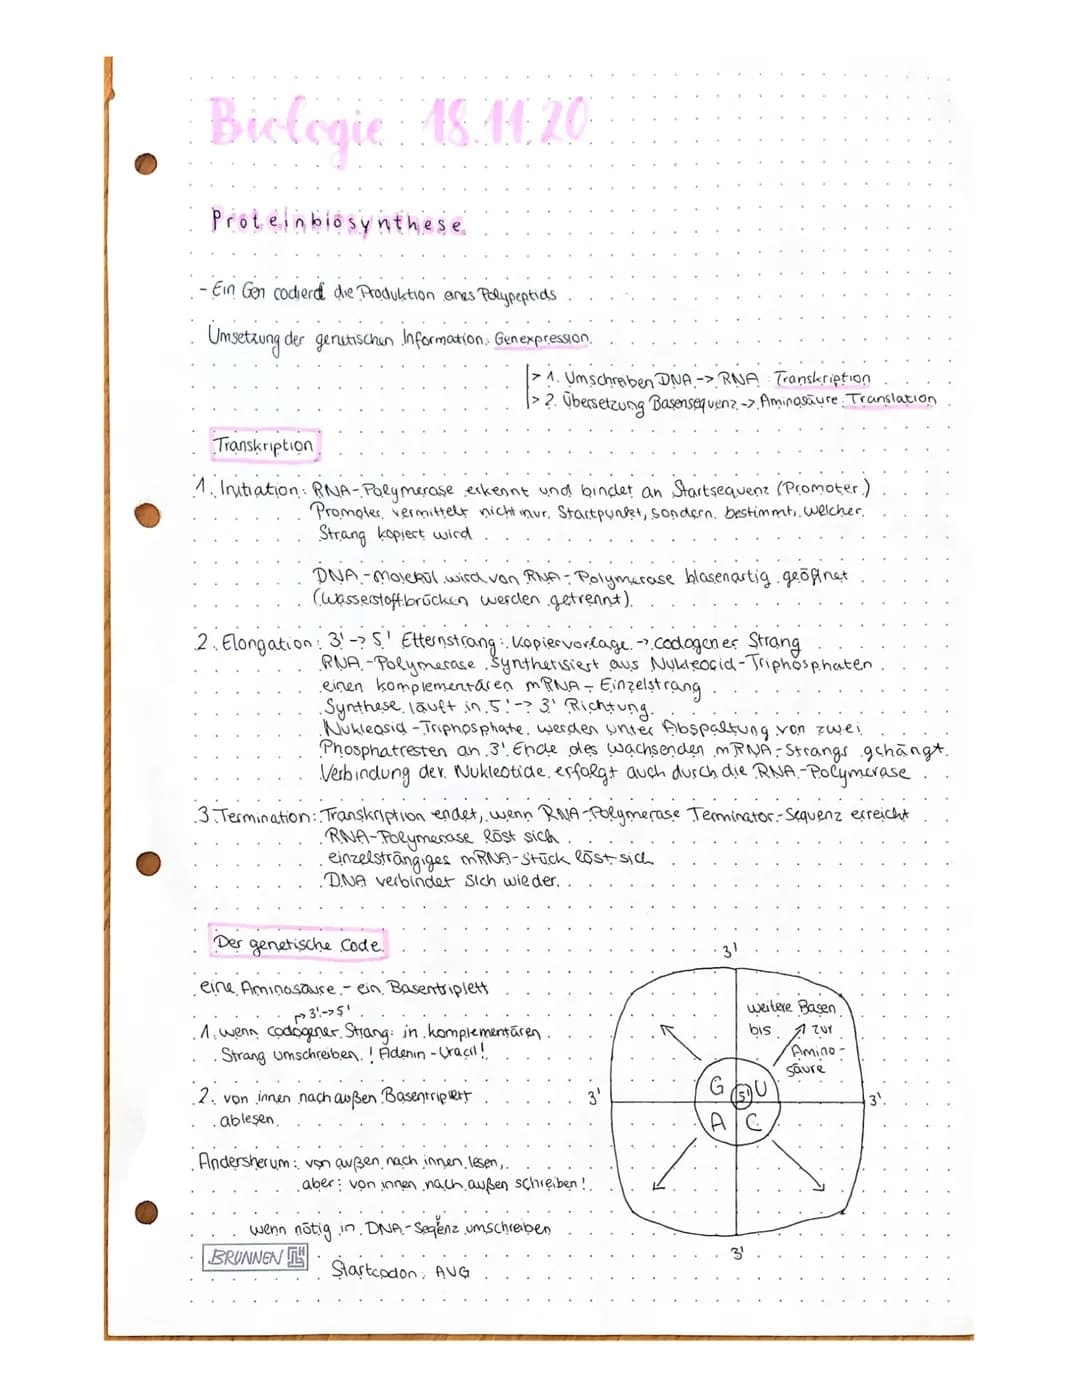 Biologie 18.11.20
Proteinbiosynthese
- Ein Gen codierd die Produktion eines Polypeptids
Umsetzung der genetischen Information: Genexpression
|> 1. Umschreiben DNA -> RNA Transkription
|> 2. Übersetzung Basensequenz -> Aminosäure: Translation
Transkription
1. Initiation: RNA-Polymerase erkennt und bindet an Startsequenz (Promoter)
Promoter vermittelt nicht nur Startpunkt, sondern bestimmt, welcher
Strang kopiert wird
DNA-Molekül wird von RNA-Polymerase blasenartig geöffnet
(Wasserstoffbrücken werden getrennt)
2. Elongation: 3'-> 5' Elternstrang: Kopiervorlage -> codogener Strang
RNA-Polymerase synthetisiert aus Nukleosid-Triphosphaten
einen komplementären mRNA-Einzelstrang
Synthese läuft in 5'-> 3' Richtung
Nukleosid-Triphosphate werden unter Abspaltung von zwei
Phosphatresten an 3' Ende des wachsenden mRNA-Strangs gehängt.
Verbindung der Nukleotide erfolgt auch durch die RNA-Polymerase
3. Termination: Transkription endet, wenn RNA-Polymerase Terminator-Sequenz erreicht
RNA-Polymerase löst sich
einzelsträngiges mRNA-Stück löst sich
DNA verbindet sich wieder.
Der genetische Code
eine Aminosäure - ein Basentriplett
3'->5'
1. wenn codogener Strang: in komplementären
Strang umschreiben ! Adenin - Uracil!
2. von innen nach außen Basentriplett
ablesen
Andersherum: von außen nach innen lesen,
aber: von innen nach außen schreiben!
wenn nötig in DNA-Seqenz umschreiben
u
BRUNNEN
Startcodon: AUG
3'
weitere Basen
bis zur
Amino-
säure
G U
3' 5' 3'
A C
3'